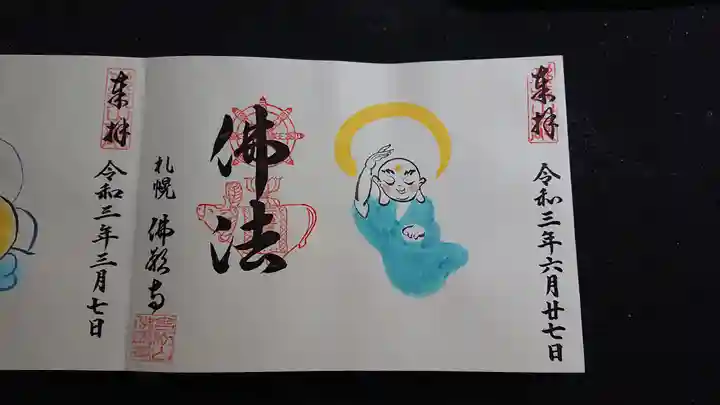 来拝
令和三年六月廿七日
佛法
札幌 佛願寺
来拝
令和三年三月七日